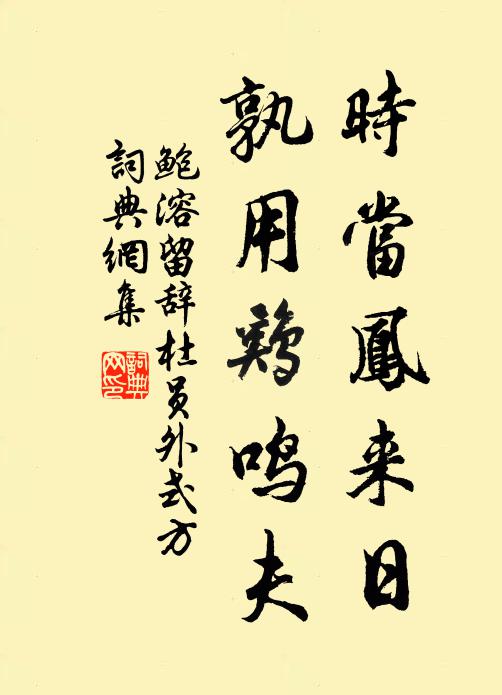 時當鳳来日
孰用鷄鸣夫
鲍溶留辞杜员外式方
詞典網集
詞典网印